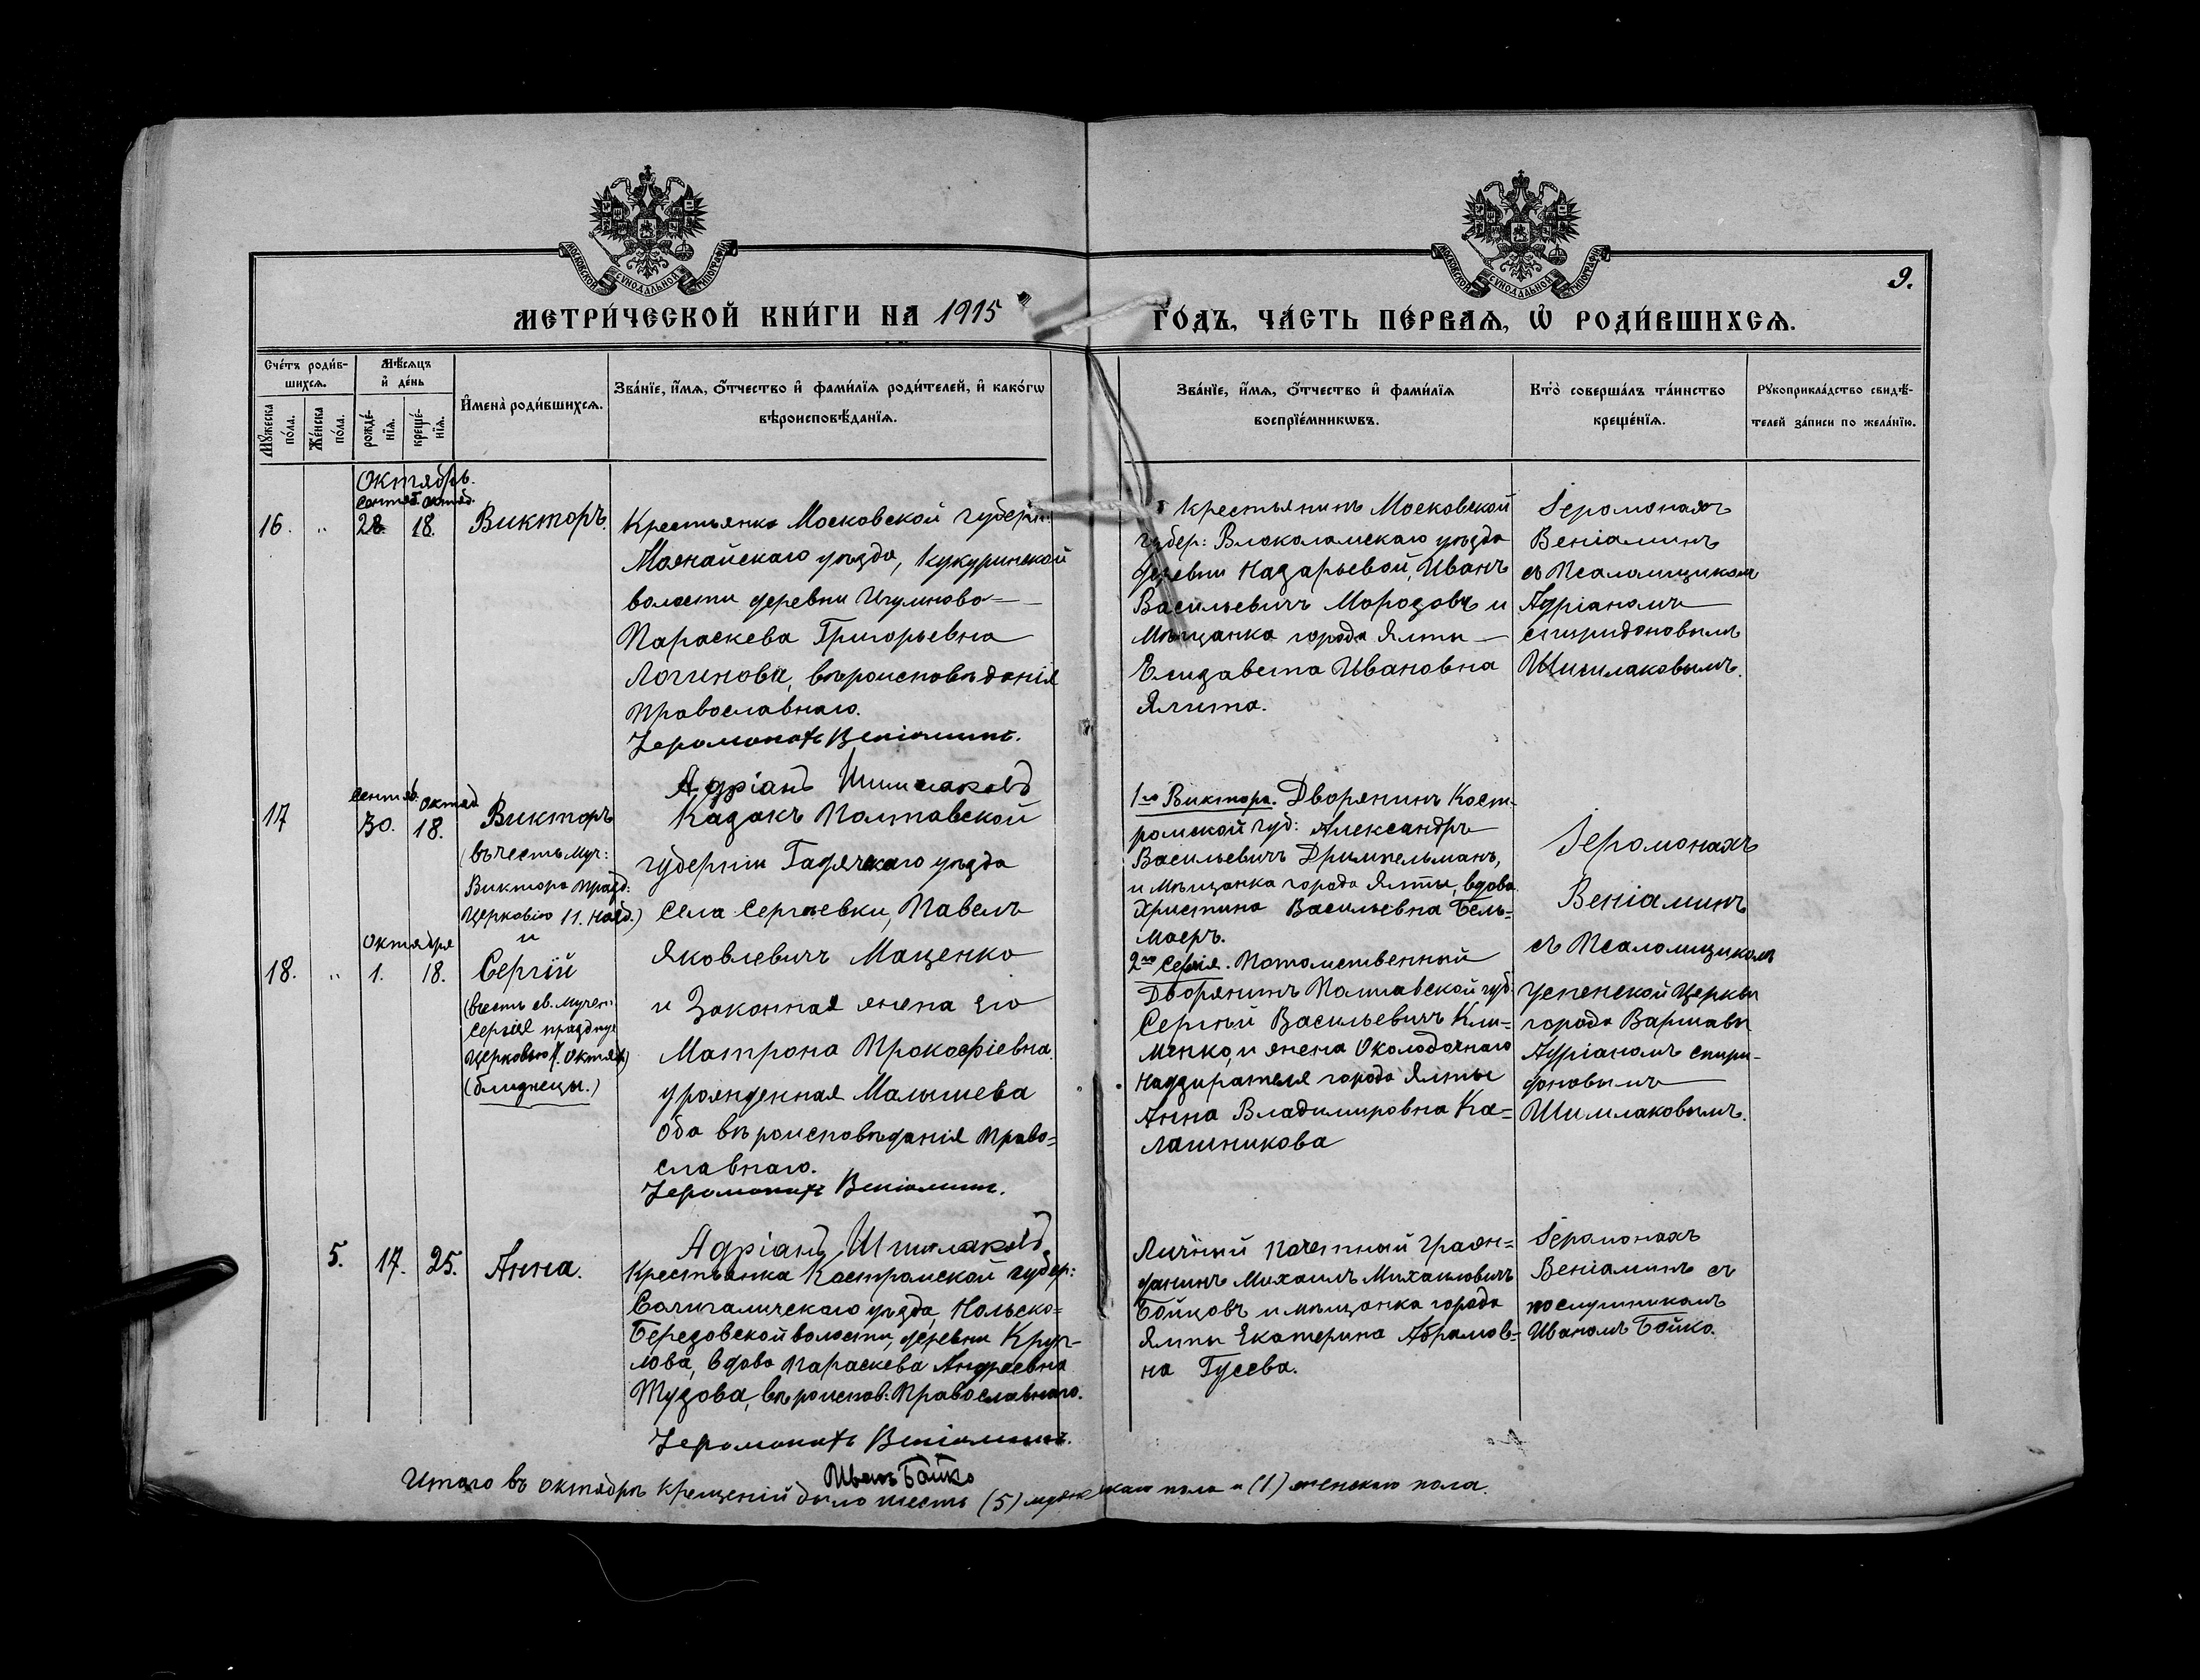 МОСКОВСКОЙ СѴНОДАЛЬНОЙ ТИПОГРАФІИ
МОСКОВСКОЙ СѴНОДАЛЬНОЙ ТИПОГРАФІИ
9.
МЕТРИ́ЧЕСКОЙ КНИ́ГИ НА 1915
ГО́ДЪ, ЧА́СТЬ ПЕ́РВАѦ, Ѡ҆ РОДИ́ВШИХСѦ.
Сче́тъ роди́в-
шихсѧ.
Мѣ́сѧцъ
и҆ де́нь
Мꙋ́жеска
по́ла.
Же́нска
по́ла.
рожде́-
нїѧ.
креще́-
нїѧ.
И҆мена̀ роди́вшихсѧ.
Зва́нїе, и҆́мѧ, ѻ҆́тчество и҆ фами́лїѧ роди́телей, и҆ како́гѡ
вѣроисповѣ́данїѧ.
Зва́нїе, и҆́мѧ, ѻ҆́тчество и҆ фами́лїѧ
воспрїе́мникѡвъ.
Кто̀ соверша́лъ та́инство
креще́нїѧ.
Рꙋкоприкла́дство свидѣ́-
телей за́писи по жела́нїю.
Октябрь.
Сентяб. Октяб.
16. „ 28. 18. Викторъ.
Крестьянка Московской губерн:
Можайскаго уѣзда, Кукуринской
волости деревни Игумново=
Параскева Григорьевна
Логинова, вѣроисповѣданія
Православнаго.
Іеромонахъ Веніаминъ.
Адріанъ Шишлаковъ
Крестьянинъ Московской
губер: Влоколамскаго уѣзда
деревни Назарьевой, Иванъ
Васильевичъ Морозовъ и
Мѣщанка города Ялты
Елизавета Ивановна
Ялита.
Іеромонахъ
Веніаминъ
съ Псаломщикомъ
Адріаномъ
Спиридоновымъ
Шишлаковымъ.
Сентяб. Октяб
17 30. 18. Викторъ
(въ честь муч:
Виктора празд:
Церковію 11. Нояб.)
и
Октября
18. „ 1. 18. Сергій
(въ честь св. Мучен:
Сергія празднуе
Церковью 7. Октяб)
(близнецы.)
Казакъ Полтавской
губерніи Гадячскаго уѣзда
Села Сергѣевки, Павелъ
Яковлевичъ Маценко
и Законная жена его
Матрона Прокофіевна
урожденная Малышева
Оба вѣроисповѣданія Право=
славнаго.
Іеромонахъ Веніаминъ.
Адріанъ Шишлаковъ
1го Виктора. Дворянинъ Кост-
ромской губ: Александръ
Васильевичъ Дримпельманъ,
и Мѣщанка города Ялты, вдова
Христина Васильевна Бель=
маеръ.
2го Сергія. Потомственный
Дворянинъ Полтавской губ:
Сергѣй Васильевичъ Кли=
менко, и жена Околодочнаго
Надзирателя города Ялты
Анна Владимировна Ка=
лашникова
Іеромонахъ
Веніаминъ
съ Псаломщикомъ
Успенской Церкви
города Варшавы
Адріаномъ Спири-
доновымъ
Шишлаковымъ.
5. 17. 25. Анна.
Крестьянка Костромской губер:
Солигаличскаго уѣзда, Нольско=
Березовской волости, деревни Круг-
лова, вдова Параскева Андреевна
Тузова, вѣроисповѣ: Православнаго.
Іеромонахъ Веніаминъ.
Иванъ Бойко
Личный Почетный Граж=
данинъ Михаилъ Михаиловичъ
Бойцовъ и мѣщанка города
Ялты Екатерина Абрамов=
на Гусева.
Іеромонахъ
Веніаминъ съ
послушникомъ
Иваномъ Бойко.
Итого въ октябрѣ крещеній было шесть (5) мужескаго пола и (1) женскаго пола.